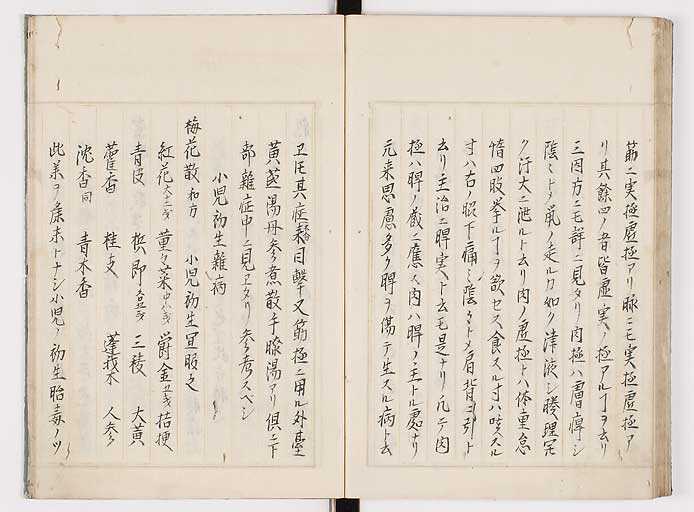 筋ニ実極虚極アリ脉ニモ実極虚極ア
リ其餘四ノ者皆虚実ノ極アルヿヲ云リ
三因方ニモ詳ニ見タリ肉極ハ痺シ
陰ミトノ鼠ノ走ルカ如ク津液シ腠理
ク汗大ニ泄ルト云リ肉ノ虚極トハ体重怠
惰四肢挙ルヿヲ欲セス食スル寸ハ咳スル
寸ハ右ノ脇下痛ミ陰々トメ肩背ニ引ト
云リ主治ニ脾実ト云モ是ナリ凡テ肉
極ハ脾ノ蔵ニ應ス肉ハ脾ノ主トル処ナリ
元来思慮多ク脾ヲ傷テ生スル病ト云
其症ヲ目撃ス又筋極ニ用ル外臺
黄湯丹参煮散千膝湯アリ倶ニ下
部雜症中ニ見ヱタリ参考スベシ
小児初生雜病
梅花散 和方 小児初生宜服之
紅花 菜 欝金 桔梗
青皮 梹郎 三稜 大黄
藿香 桂支 蓬莪朮 人参
沈香 同 青木香
此美ヲ末トナシ小児ノ初生胎毒ノツ